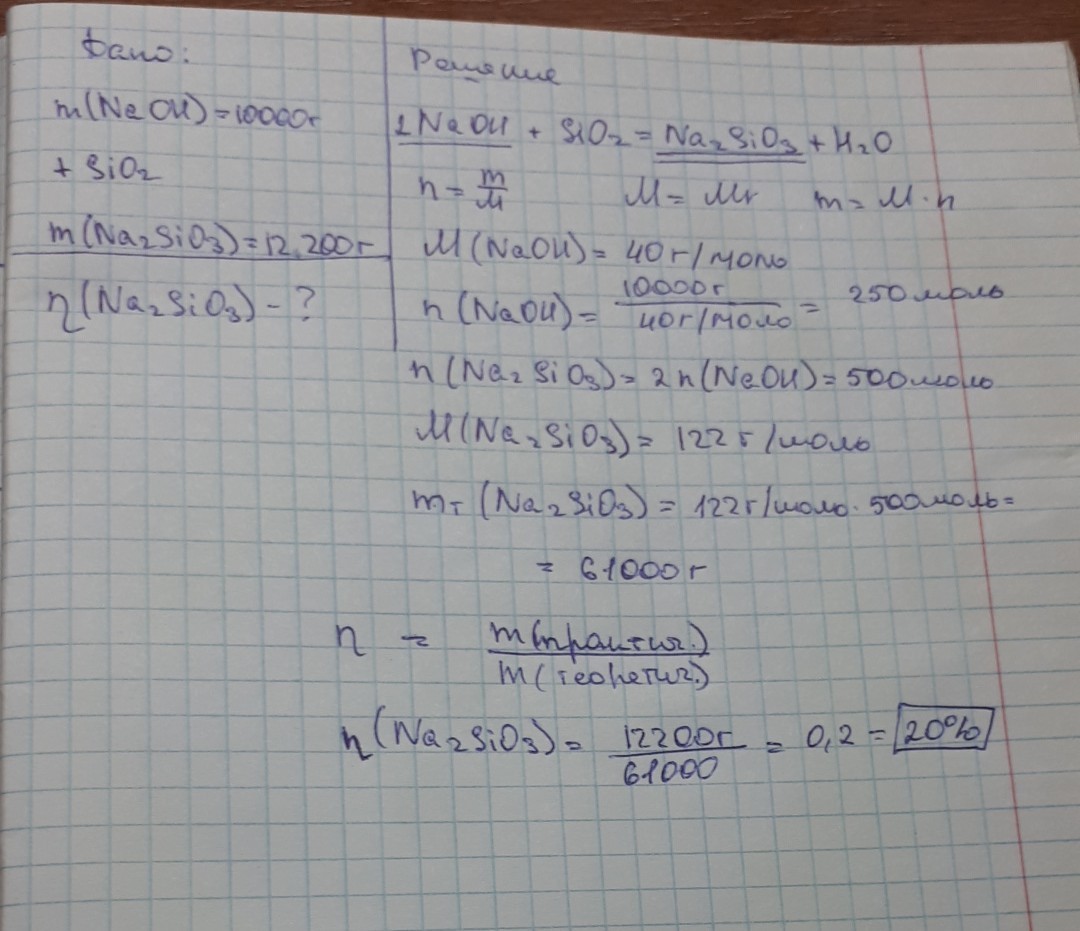 Дано:
m(NaOH)=10000г
+ SiO2
m(Na2SiO3)=12.200г
η(Na2SiO3) - ?
Решение
2NaOH + SiO2 = Na2SiO3 + H2O
n = m/M M = Mr m = M · n
M(NaOH) = 40 г/моль
n(NaOH) = 10000г/40г/моль = 250моль
n(Na2SiO3) = 2n(NaOH) = 500моль
M(Na2SiO3) = 122 г/моль
mт (Na2SiO3) = 122г/моль · 500моль =
= 61000г
η = m(практич.)/m(теоретич.)
η(Na2SiO3) = 12200г/61000 = 0,2 = 20%